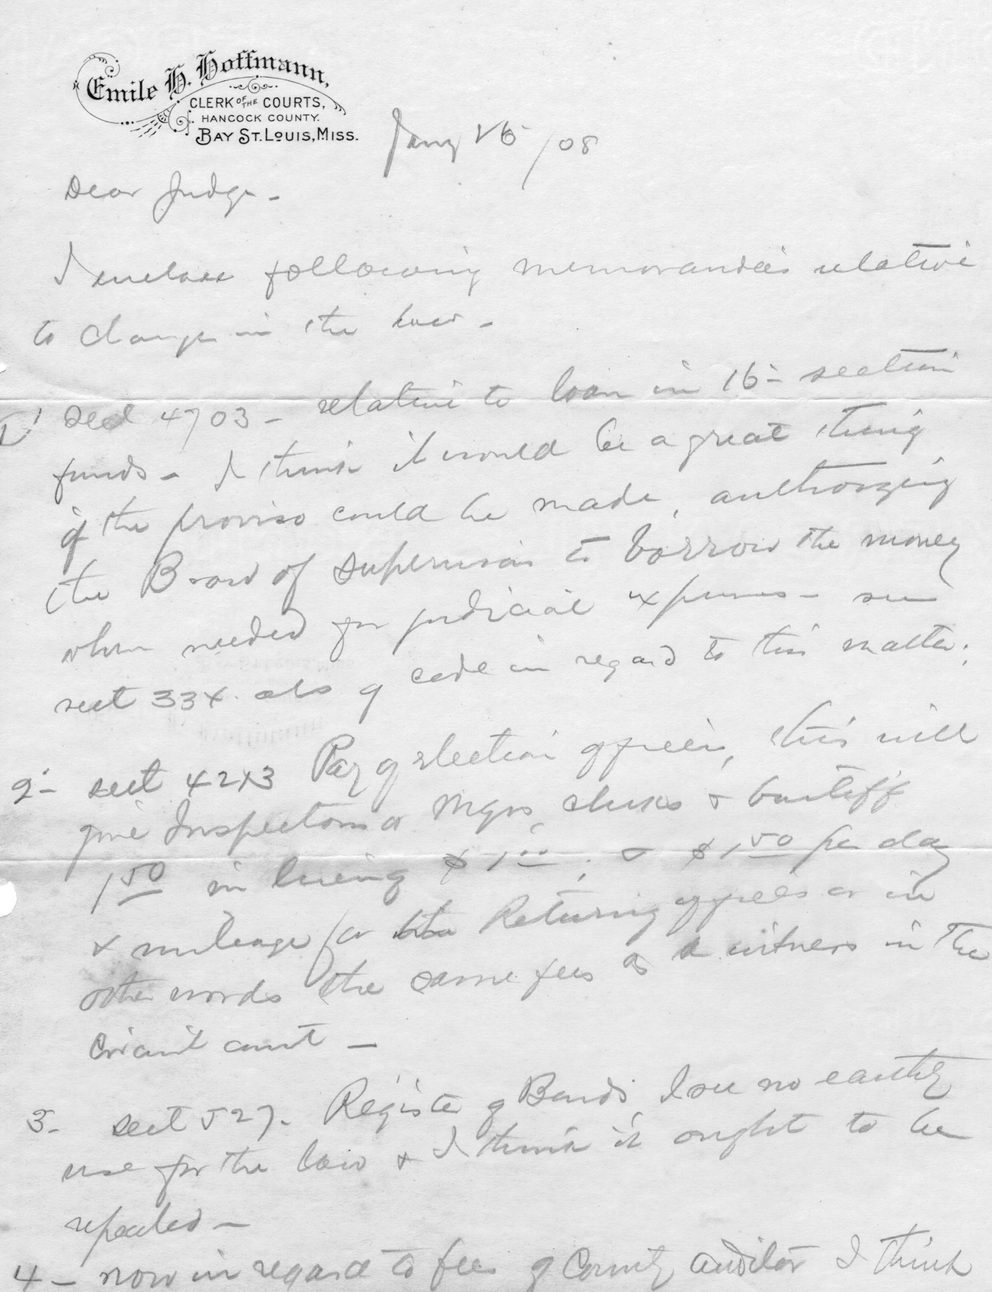 Emile H. Hoffmann,
CLERK OF THE COURTS,
HANCOCK COUNTY.
BAY ST. LOUIS, MISS.
Jany 26/08
Dear Judge -
I enclose following memoranda's relative
to change in the law -
1' Sect 4703 - relative to loan in 16 - section
funds - I think it would be a great thing
if the proviso could be made, authorizing
the Board of Supervisors to borrow the money
when needed for judicial expenses - see
sect 334. also of code in regard to this matter;
2 - sect 4213 Pay of election officers, this will
give Inspectors or Mgrs, clerks & bailiff
1 50 in lieu of $1 00; & $1 50 per day
& mileage for Returning officers or in
other words the same fees as a witness in the
Circuit court -
3 - sect 527. Register of Bonds I see no earthly
use for the law & I think it ought to be
repealed -
4 - now in regard to fees of County auditor I think